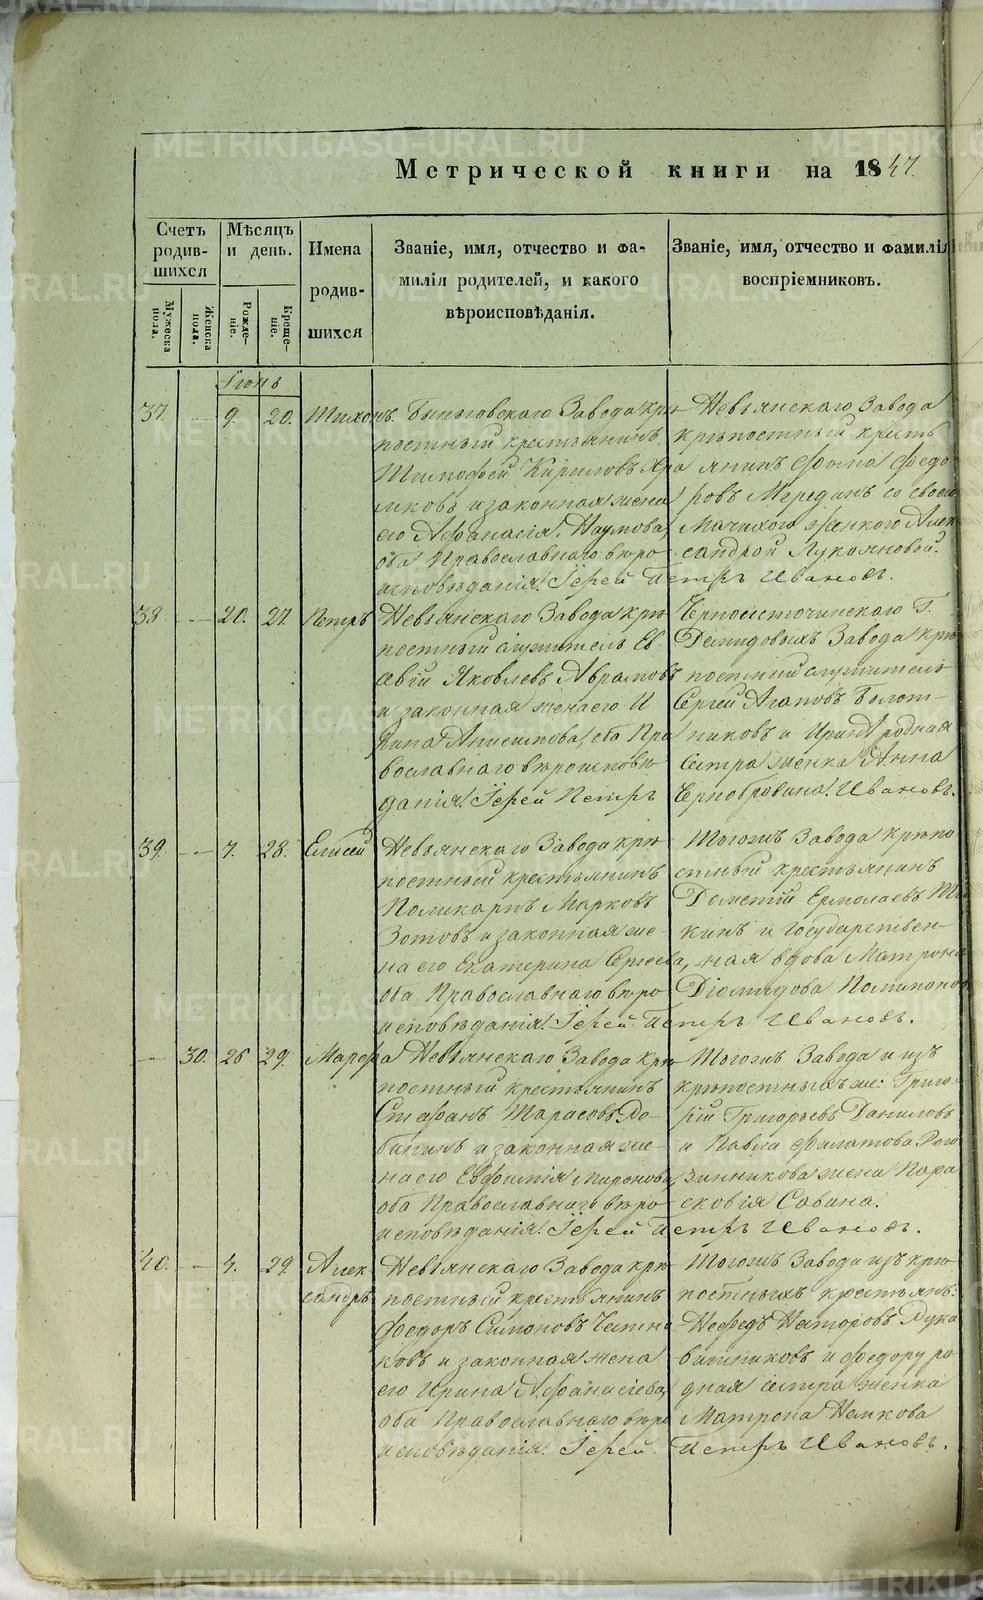 Метрической книги на 1847.
Счетъ родив-шихся
Мѣсяцъ и день.
Имена родив-шихся
Званіе, имя, отчество и фа-
милія родителей, и какого
вѣроисповѣданія.
Званіе, имя, отчество и фамилія
воспріемниковъ.
Мужеска пола.
Женска пола.
Рожде-ніе.
Креще-ніе.
Іюнь
37. — 9. 20. Тихонъ.
Быньговскаго Завода крѣ
постный крестьянинъ
Тимофей Кириловъ
ковъ и законная жена
его Афанасія Наумова,
оба Православнаго вѣро
исповѣданія. Іерей Петръ Ивановъ.
Невьянскаго Завода
крѣпостный кресть
янинъ Фома Федо
ровъ Мерединъ со своей
Мачихою женкою Алек
сандрой Лукояновой.
38 — 20. 27. Петръ
Невьянскаго Завода крѣ
постный служитель Ев-
Яковлевъ Абрамовъ
и законная жена его И
рина Анисимова, оба Пра
вославнаго вѣроисповѣ
данія. Іерей Петръ Ивановъ.
Черноисточинскаго Г.
Демидовыхъ Завода крѣ
постный служитель
Сергей Агаповъ Болот-
никовъ и родная
сестра женка Анна
Чернобровина.
39. — 7. 28. Елисей
Невьянскаго Завода крѣ
постный крестьянинъ
Поликарпъ Марковъ
Зотовъ и законная же-
на его Екатерина Сергеева,
оба Православнаго вѣро
исповѣданія. Іерей Петръ Ивановъ.
Тогожъ Завода крѣпо
стный крестьянинъ
Дометій Ермолаевъ
кинъ и Государствен-
ная вдова Матрона
Діомидова
— 30. 26 29. Марфа
Невьянскаго Завода крѣ
постный крестьянинъ
Стефанъ Тарасовъ До-
бинъ и законная же-
на его Евфимія Миронова,
оба Православнаго вѣро-
исповѣданія. Іерей Петръ Ивановъ.
Тогожъ Завода и изъ
крѣпостныхъ же: Григо-
рій Григорьевъ Даниловъ
и Павла Филатова Рого
зинникова жена Пара
сковія Савина.
40. — 4. 29. Алек
сандръ
Невьянскаго Завода крѣ
постный крестьянинъ
Федоръ Симоновъ
ковъ и законная жена
его Ирина Афанасіева,
оба Православнаго вѣро
исповѣданія. Іерей Петръ Ивановъ.
Тогожъ Завода изъ крѣ
постныхъ крестьянъ:
Нефедъ Нестеровъ Рука
вишниковъ и Федору ро-
дная сестра женка
Матрона Немкова
METRIKI.GASO-URAL.RU